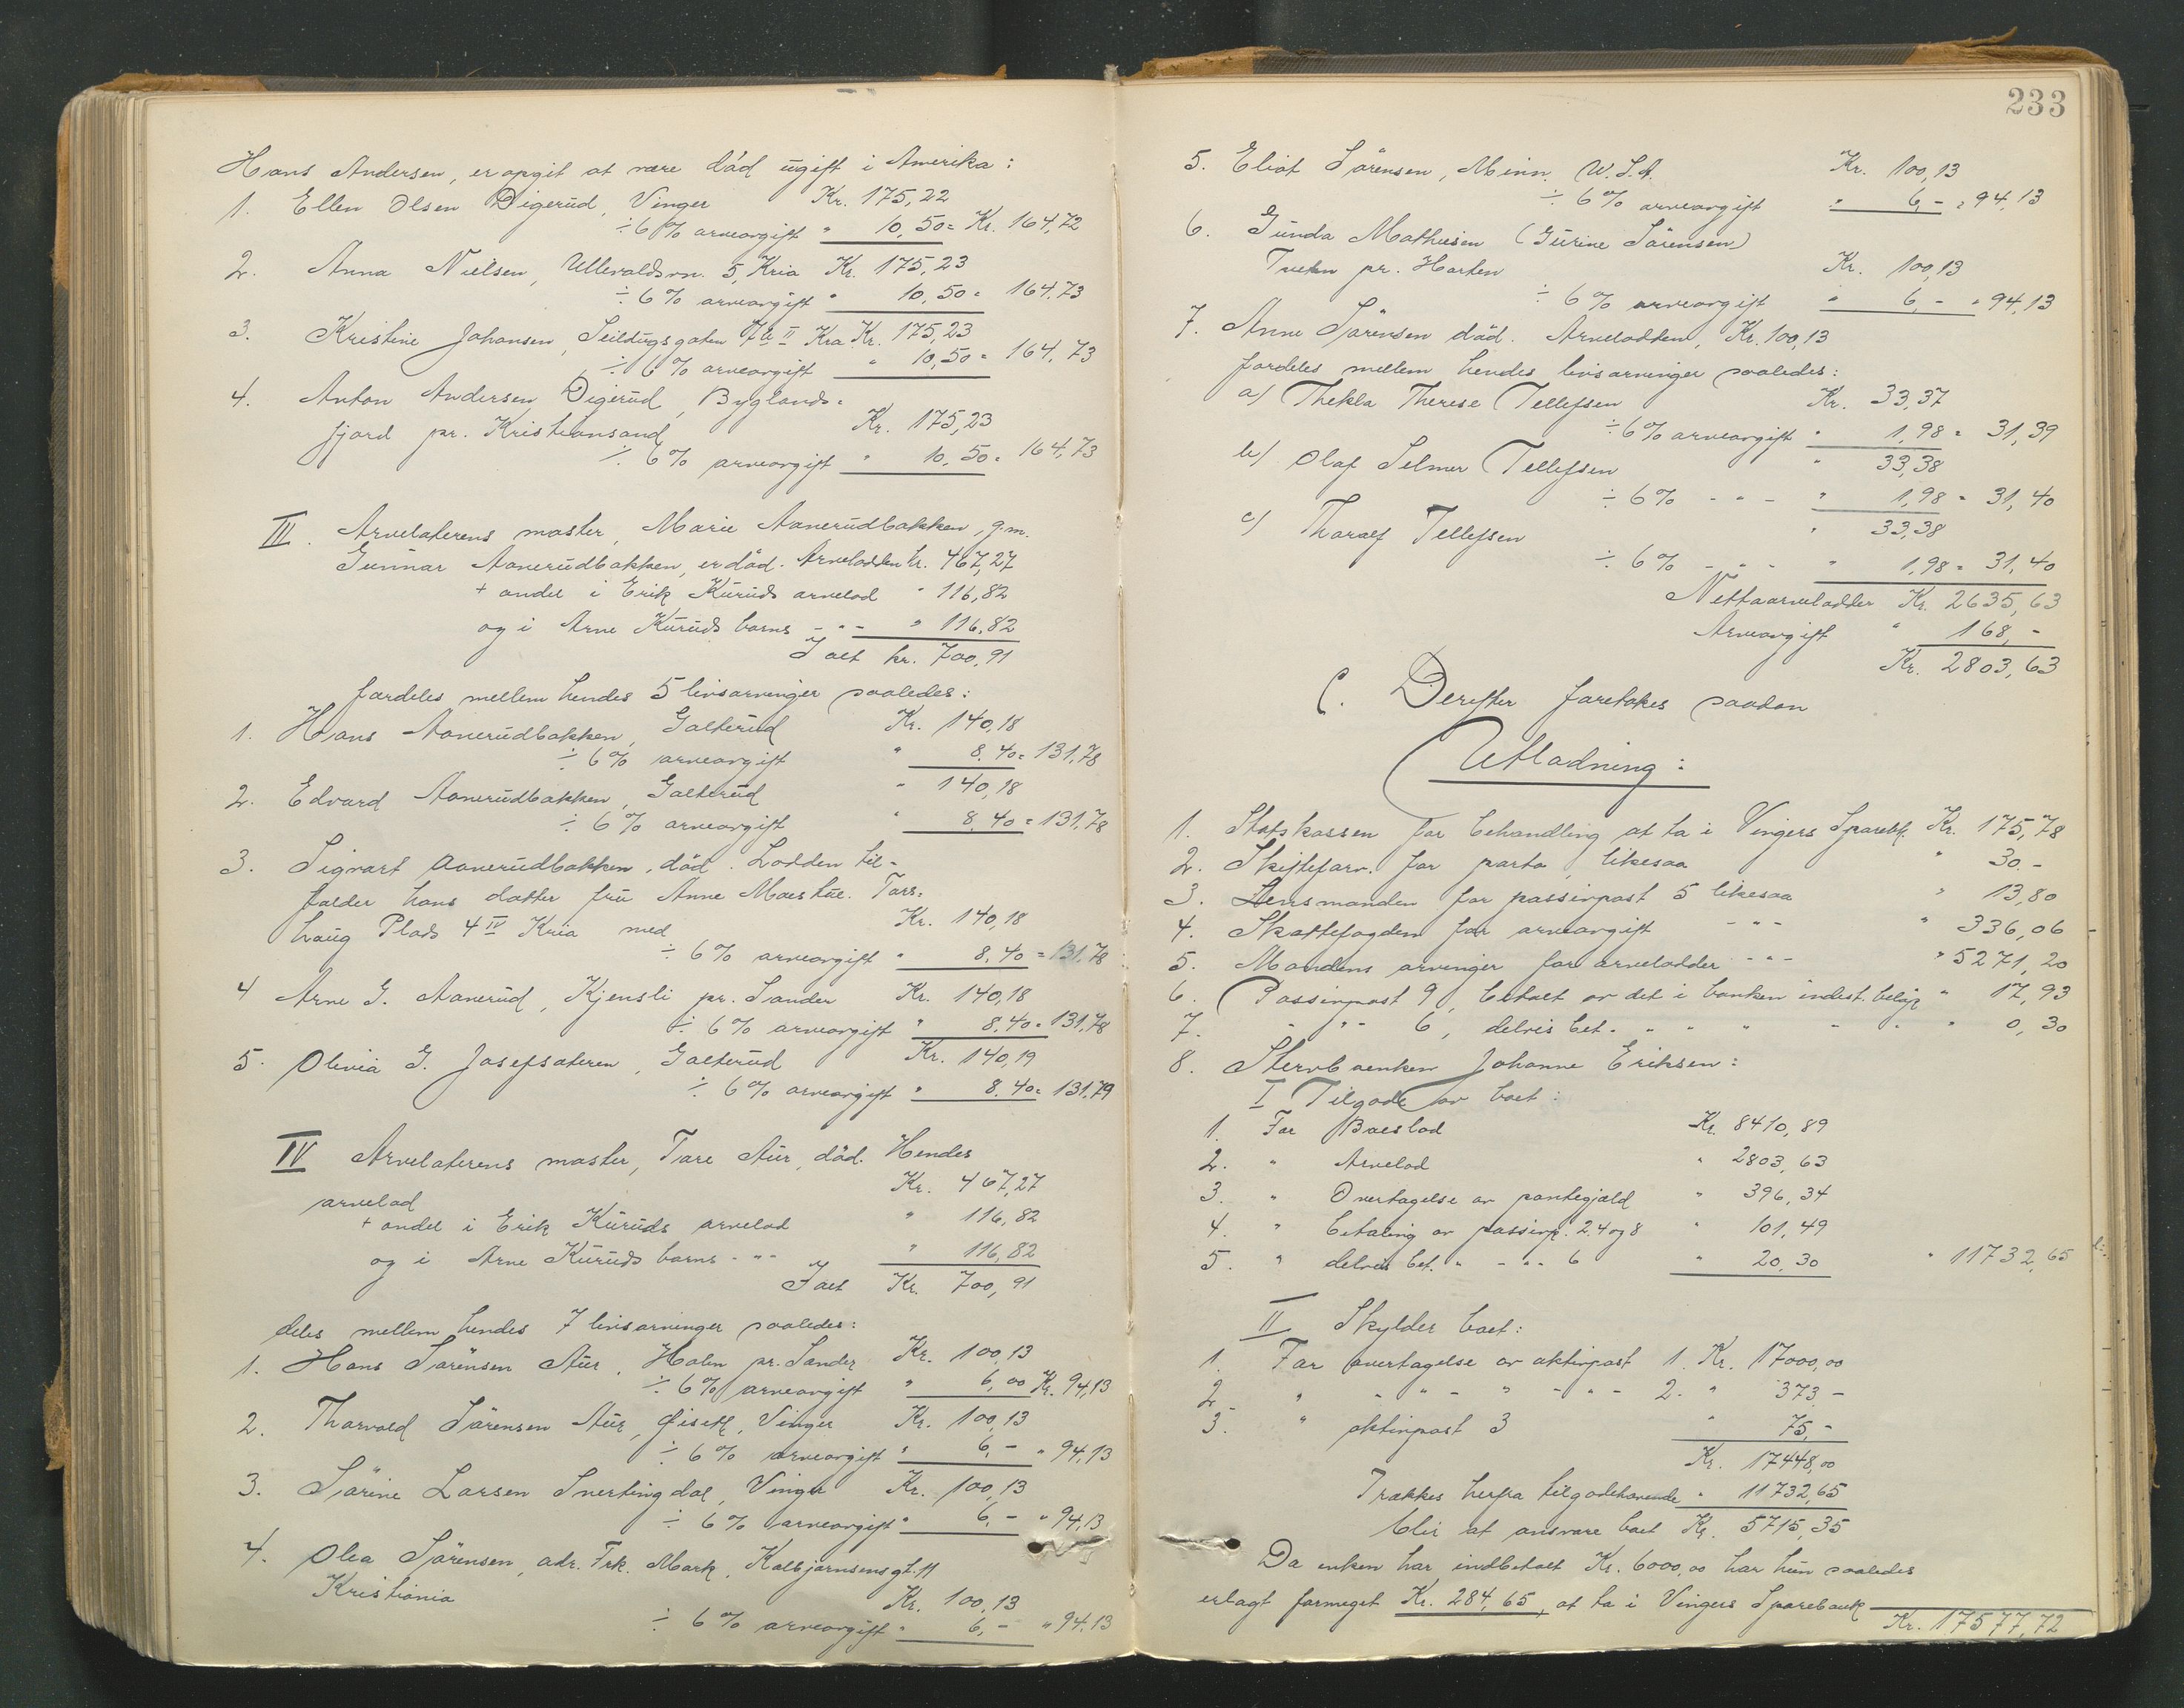 Hans Andersen, er opgit at være död ugift i Amerika:
1. Ellen Olsen Digerud, Vinger Kr. 175,22
÷ 6 % arveavgift " 10,50 = Kr. 164,72
2. Anna Nielsen, Ullevaldsvn. 5, Kria Kr. 175,23
÷ 6 % arveavgift " 10,50 = 164,73
3. Kristine Johansen, Seildugsgaten II Kra Kr. 175,23
÷ 6 % arveavgift " 10,50 = 164,73
4. Anton Andersen Digerud, Byglands=
fjord pr. Kristiansand Kr. 175,23
÷ 6 % arveavgift " 10,50 = 164,73
III. Arvelaterens moster, Marie Aanerudbakken, g.m.
Gunnar Aanerudbakken, er död. Arvelodden kr. 467,27
+ andel i Erik Kuruds arvelod " 116,82
og i Arne Kuruds barns - " - " 116,82
Ialt kr. 700,91
fordeles mellem hendes 5 livsarvinger saaledes:
1. Hans Aanerudbakken, Galterud Kr. 140,18
÷ 6 % arveavgift " 8,40 = 131,78
2. Edvard Aanerudbakken, Galterud " 140,18
÷ 6 % arveavgift " 8,40 = 131,78
3. Sigvart Aanerudbakken, död. Lodden til-
falder hans datter fru Anne Moeshue. Tors-
haug Plads 4 IV Kria med Kr. 140,18
÷ 6 % arveavgift " 8,40 = 131,78
4 Arne G. Aanerud, Kjensli pr. Sander Kr. 140,18
÷ 6 % arveavgift " 8,40 = 131,78
5. Olivia G. Josefsæteren, Galterud Kr. 140,19
÷ 6 % arveavgift " 8,40 = 131,79
IV Arvelaterens moster, Tore Aur, död. Hendes
arvelod Kr. 467,27
+ andel i Erik Kuruds arvelod " 116,82
og i Arne Kuruds barns - " - " 116,82
Ialt Kr. 700,91
deles mellem hendes 7 livsarvinger saaledes:
1. Hans Sörensen Aur, Holm pr. Sander Kr. 100,13
÷ 6 % arveavgift " 6,00 Kr. 94,13
2. Thorvald Sörensen Aur, Öiset, Vinger Kr. 100,13
÷ 6 % arveavgift " 6,- " 94,13
3. Sörine Larsen Snertingdal, Vinger Kr. 100,13
÷ 6 % arveavgift " 6,- " 94,13
4. Olea Sörensen, adr. Frk. Mork, Kolbjörnsensgt. 11
Kristiania Kr. 100,13
÷ 6 % arveavgift " 6,- " 94,13
233
5. Eliot Sörensen, Minn. U.S.A. Kr. 100,13
÷ 6 % arveavgift " 6,- " 94,13
6. Gunda Mathiesen (Gurine Sörensen)
Tveten pr. Horten Kr. 100,13
÷ 6 % arveavgift " 6,- " 94,13
7. Anne Sörensen död. Arvelodden, Kr. 100,13
fordeles mellem hendes livsarvinger saaledes:
a) Thekla Therese Tellefsen Kr. 33,37
÷ 6 % arveavgift " 1,98 = 31,39
b) Olaf Selmer Tellefsen " 33,38
÷ 6 % - " - " 1,98 = 31,40
c) Thoralf Tellefsen " 33,38
÷ 6 % - " - " 1,98 = 31,40
Nettoarvelodder Kr. 2635,63
Arveavgift " 168,-
Kr. 2803,63
C. Derefter foretokes saadan
Utlodning:
1. Statskassen for behandling at ta i Vingers Sparebk. Kr. 175,78
2. Skifteforv. for porto, likesaa " 30.-
3. Lensmanden for passivpost 5 likesaa " 13,80
4. Skattefogden for arveavgift - " - " 336,06
5. Mandens arvinger for arvelodder - " - " 5271,20
6. Passivpost 9, betalt av det i banken indest. belöp " 17,93
7. - " - 6, delvis bet. " " " " " " 0,30
8. Stervboenken Johanne Eriksen:
I Tilgode av boet:
1. For Boeslod Kr. 8410,89
2. " Arvelod " 2803,63
3. " Overtagelse av pantegjæld " 396,34
4. " betaling av passivp. 2. 4 og 8 " 101,49
5. " delvis bet. " - " - 6 " 20,30 " 11732,65
II Skylder boet:
1. For overtagelse av aktivpost 1. Kr. 17000,00
2. " - " - " - " - 2. " 373 -
3. " aktivpost 3 " 75,-
Kr. 17448,00
Trækkes herfra tilgodehavende " 11732,65
blir at ansvare boet Kr. 5715,35
Da enken har indbetalt Kr. 6000,00 har hun saaledes
erlagt formeget Kr. 284,65, at ta i Vingers Sparebank
Kr. 17577,72